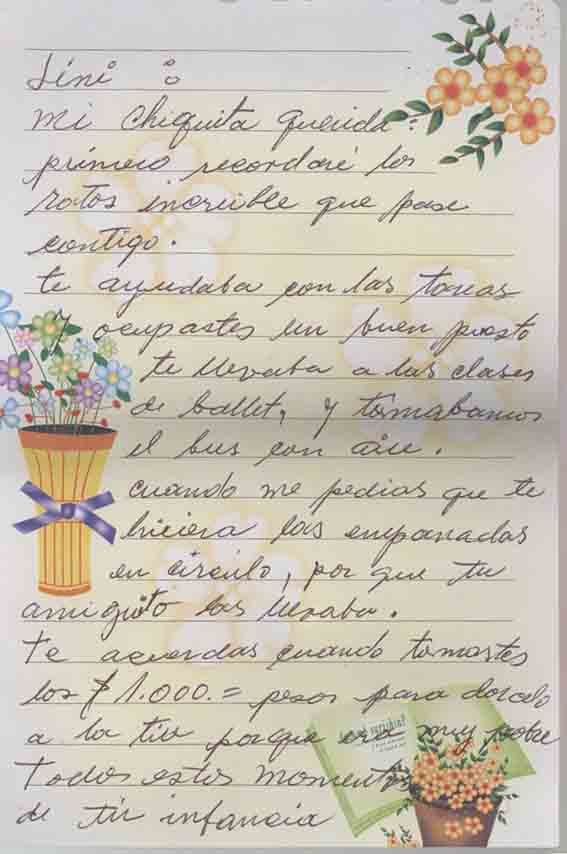 Lini :
Mi Chiquita querida :
primero recordaré los
ratos increible que pase
contigo.
te ayudaba con las tareas
y ocupastes un buen puesto
te llevaba a las clases
de ballet, y tomabamos
el bus con aire.
cuando me pedias que te
hiciera las empanadas
en circulo, por que tu
amiguito las llevaba.
Te acuerdas cuando tomastes
los $ 1.000.= pesos para
a la tia porque era muy pobre
Todos estos momentos
de tú infancia